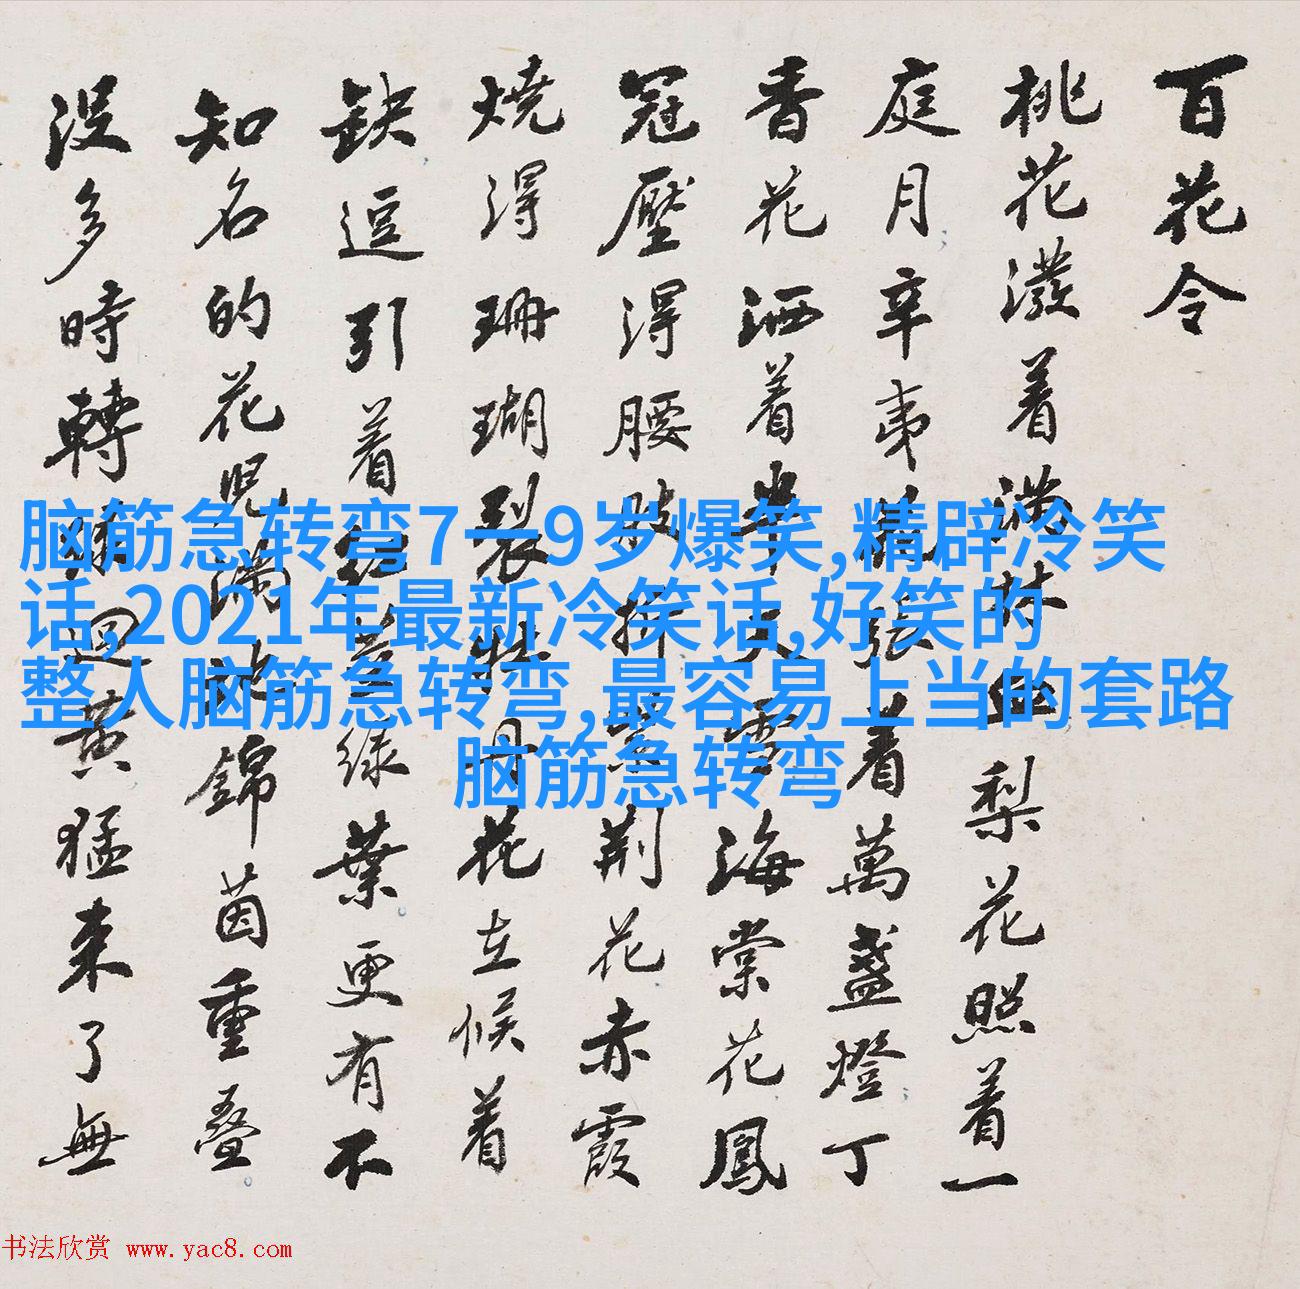 百花令
桃花潑着滿林血梨花照着一
庭月辛夷張着萬盞燈丁
香花洒着半天雪海棠花鳳
冠壓得腰肢折紫荊花赤霞
燒得珊瑚裂牡丹花立候着
缺逗引着綠葉更有不
知名的花兒滿地錦茵重疊
沒多時轉眼迴黃猛來了無
脑筋急转弯7一9岁爆笑,精辟冷笑
话,2021年最新冷笑话,好笑的
整人脑筋急转弯,最容易上当的套路
脑筋急转弯
书法欣赏 www.yac8.com